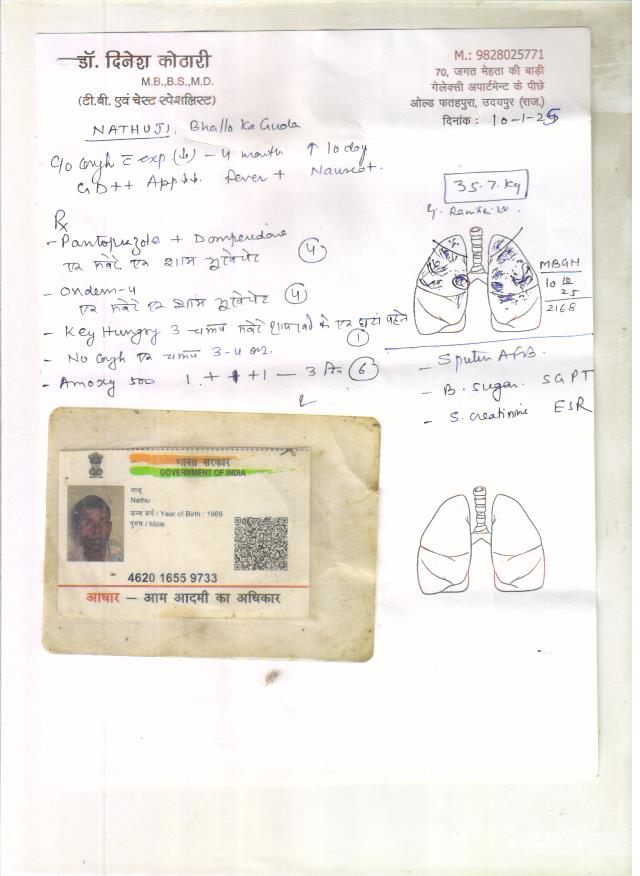 डॉ. दिनेश कोठारी
M.B.,B.S.,M.D.
(टी.बी. एवं चेस्ट स्पेशलिस्ट)
M.: 9828025771
70, जगत मेहता की बाड़ी
गेलेक्सी अपार्टमेन्ट के पीछे
ओल्ड फतहपुरा, उदयपुर (राज.)
दिनांक : 10-1-25
NATHUJI. Bhallo Ka Guda
C/o Cough c̄ exp (↓) - 4 month ↑ 10 day
GD++ App↓↓ fever + Nausea+.
35.7. Kg
Rx
- Pantoprazole + Domperidone
एक सवेरे एक शाम भूखे पेट (4)
- Ondem-4
एक सवेरे एक शाम भूखे पेट (4)
- Key Hungry 3 चम्मच सवेरे शाम के एक घंटा पहले (1)
- No Cough एक चम्मच 3-4
- Amoxy 500 1 + 1 + 1 — 3 (6)
MBGH
10 10
25
2168
- Sputum AFB.
- B. Sugar. SGPT
- S. creatinine ESR
भारत सरकार
GOVERNMENT OF INDIA
नाथू
Nathu
जन्म वर्ष / Year of Birth : 1969
पुरुष / Male
4620 1655 9733
आधार — आम आदमी का अधिकार